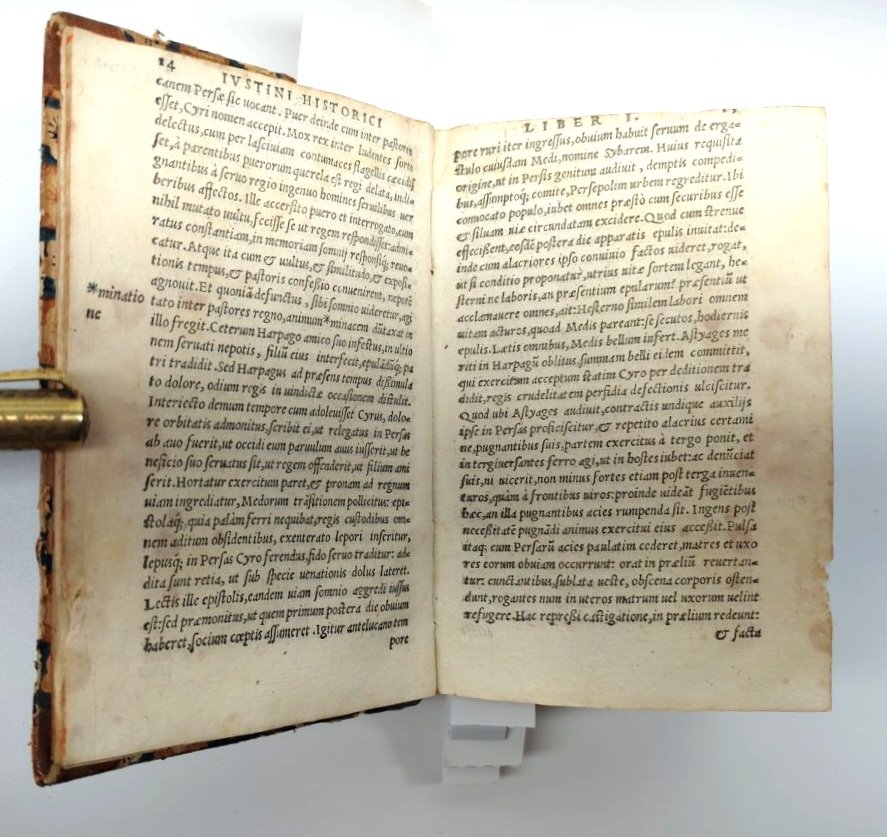 14
IVSTINI HISTORICI
canem Persæ sic uocant. Puer deinde cum inter pastores
esset, Cyri nomen accepit. Mox rex inter ludentes sorte
delectus, cum per lasciuiam contumaces flagellis cæcidis
set, à parentibus puerorum querela est regi delata, indi=
gnantibus à seruo regio ingenuos homines seruilibus uer
beribus affectos. Ille accersito puero et interrogato, cum
nihil mutato uultu, fecisse se ut regem respondisset: admi=
ratus constantiam, in memoriam somnij responsiq; reuo=
catur. Atque ita cum & uultus, & similitudo, & exposi=
tionis tempus, & pastoris confessio conuenirent, nepotē
agnouit. Et quoniā defunctus, sibi somnio uideretur, agi
tato inter pastores regno, animum *minacem dūtaxat in
*minatio
ne
illo fregit. Ceterum Harpago amico suo infestus, in ultio
nem seruati nepotis, filiū eius interfecit, epulādūq; pa
tri tradidit. Sed Harpagus ad præsens tempus dissimula
to dolore, odium regis in uindictæ occasionem distulit.
Interiecto demum tempore cum adoleuisset Cyrus, dolo=
re orbitatis admonitus, scribit ei, ut relegatus in Persas
ab auo fuerit, ut occidi eum paruulum auus iusserit, ut be
neficio suo seruatus sit, ut regem offenderit, ut filium ami
serit. Hortatur exercitum paret, & pronam ad regnum
uiam ingrediatur, Medorum trāsitionem pollicitus: epi=
stolaq;, quia palàm ferri nequibat, regis custodibus om=
nem aditum obsidentibus, exenterato lepori inseritur,
lepusq; in Persas Cyro ferendus, fido seruo traditur: ad=
dita sunt retia, ut sub specie uenationis dolus lateret.
Lectis ille epistolis, eandem uiam somnio aggredi iussus
est: sed præmonitus, ut quem primum postera die obuium
haberet, socium cœptis assumeret. Igitur antelucano tem
pore
LIBER I.
pore ruri iter ingressus, obuium habuit seruum de erga=
stulo cuiusdam Medi, nomine Sybarem. Huius requisita
origine, ut in Persis genitum audiuit, demptis compedi=
bus, assumptoq; comite, Persepolim urbem regreditur. Ibi
conuocato populo, iubet omnes præstò cum securibus esse
& siluam uiæ circundatam excidere. Quod cum strenue
effecissent, eosdē postera die apparatis epulis inuitat: de=
inde cum alacriores ipso conuiuio factos uideret, rogat,
ut si conditio proponatur, utrius uitæ sortem legant, he=
sterni ne laboris, an præsentium epularum? præsentiū ut
acclamauere omnes, ait: Hesterno similem labori omnem
uitam acturos, quoad Medis pareant: se secutos, hodiernis
epulis. Lætis omnibus, Medis bellum infert. Astyages me
riti in Harpagū oblitus, summam belli eidem committit,
qui exercitum acceptum statim Cyro per deditionem tra
didit, regis crudelitatem perfidia defectionis ulciscitur.
Quod ubi Astyages audiuit, contractis undique auxilijs
ipse in Persas proficiscitur, & repetito alacrius certami
ne, pugnantibus suis, partem exercitus à tergo ponit, et
in tergiuersantes ferro agi, ut in hostes iubet: ac denūciat
suis, ni uicerit, non minus fortes etiam post terga inuen=
turos, quàm à frontibus uiros: proinde uideāt fugiētibus
hæc, an illa pugnantibus acies rumpenda sit. Ingens post
necessitatē pugnādi animus exercitui eius accessit. Pulsa
itaq; cum Persarū acies paulatim cederet, matres et uxo
res eorum obuiam occurrunt: orat in præliū reuertan=
tur: cunctantibus, sublata ueste, obscena corporis osten=
dunt, rogantes num in uteros matrum uel uxorum uelint
refugere. Hac repressi castigatione, in prælium redeunt:
& facta